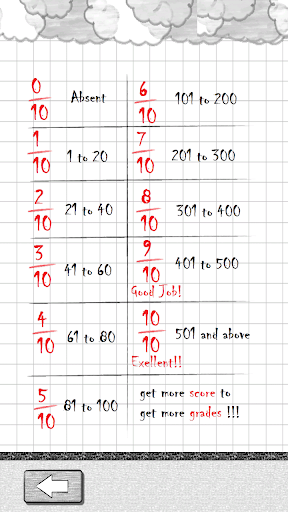 0/10 Absent
1/10 1 to 20
2/10 21 to 40
3/10 41 to 60
4/10 61 to 80
5/10 81 to 100
6/10 101 to 200
7/10 201 to 300
8/10 301 to 400
9/10 401 to 500
Good Job!
10/10 501 and above
Exellent!!
get more score to
get more grades !!!